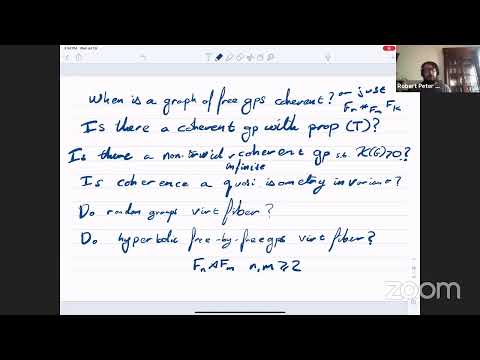 When is a graph of free gps coherent? or just
Fn *Fm Fk
Is there a coherent gp with prop (T)?
Is there a non-trivial coherent gp s.t. X(G)>0?
infinite
Is coherence a quasi isometry invariant?
Do random groups virt fiber?
Do hyperbolic free-by-free gps virt fiber?
Fn ⋊ Fm n,m ≥ 2
Robert Peter
zoom